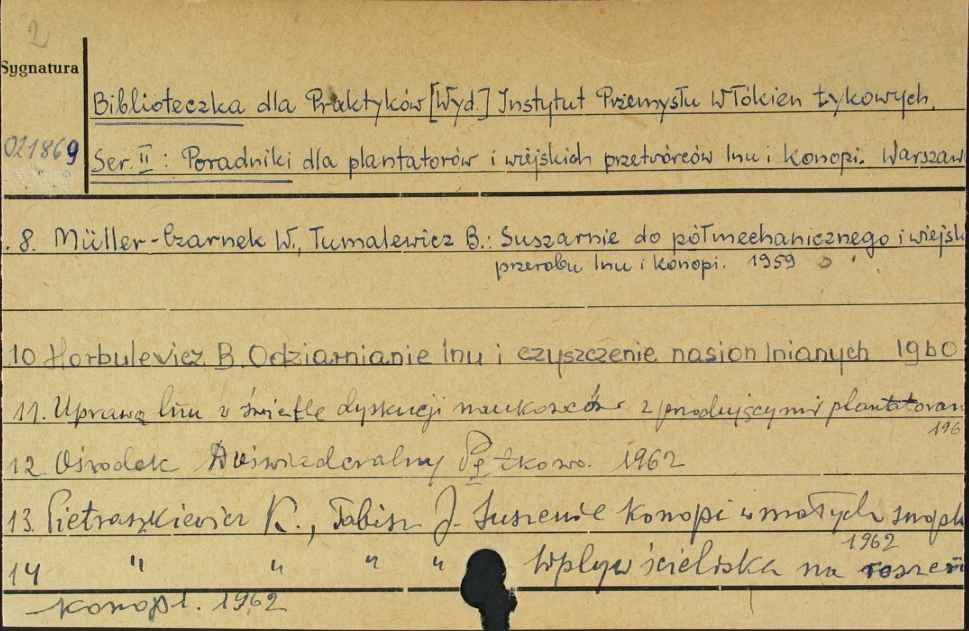 2
Sygnatura
Biblioteczka dla Praktyków [Wyd.] Instytut Przemysłu Włókien Łykowych.
021869
Ser. II : Poradniki dla plantatorów i wiejskich przetwórców lnu i konopi. Warszaw
. 8. Müller-Czarnek W., Tumalewicz B.: Suszarnie do półmechanicznego i wiejsk
przerobu lnu i konopi. 1959
10 Horbulewicz B. Odziarnianie lnu i czyszczenie nasion lnianych 1960
11. Uprawa lnu w świetle dyskusji naukowców z przodującymi plantatoram
196
12. Ośrodek Doświadczalny Pętkowo. 1962
13. Pietraszkiewicz K., Tabisz J. Suszenie konopi w małych snopk
1962
14 " " " " Wpływ ścieliska na roszeni
konopi. 1962